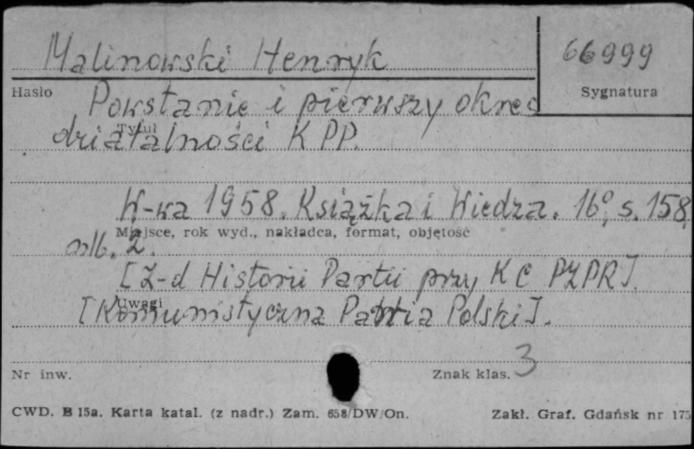 Malinowski Henryk 66999
Hasło Sygnatura
Powstanie i pierwszy okres
Tytuł
działalności KPP.
W-wa 1958. Książka i Wiedza. 16°, s. 158,
Miejsce, rok wyd., nakładca, format, objętość
nlb. 2.
[Z-d Historii Partii przy KC PZPR].
Uwagi
[Komunistyczna Partia Polski].
Nr inw. Znak klas. 3
CWD. B 15a. Karta katal. (z nadr.) Zam. 658/DW/On. Zakł. Graf. Gdańsk nr 175